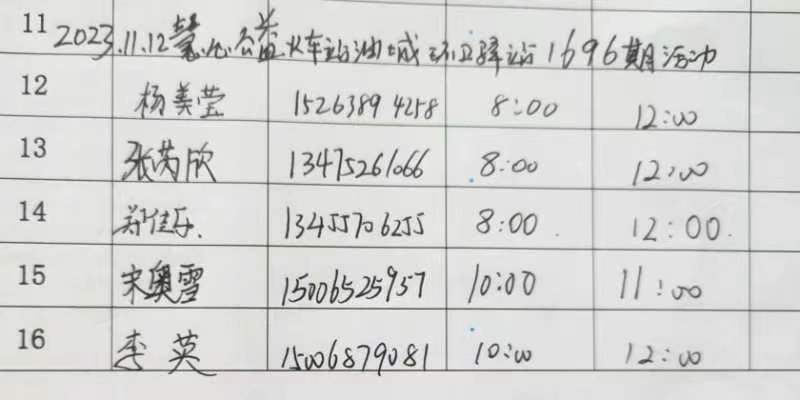 11 2023.11.12慧心公益火车站油城环卫驿站1696期活动
12 杨美莹 15263894258 8:00 12:00
13 张芮欣 13475261066 8:00 12:00
14 郑佳乐. 13455706255 8:00 12:00.
15 宋奥雪 15006525957 10:00 11:00
16 李英 15006879081 10:00 12:00